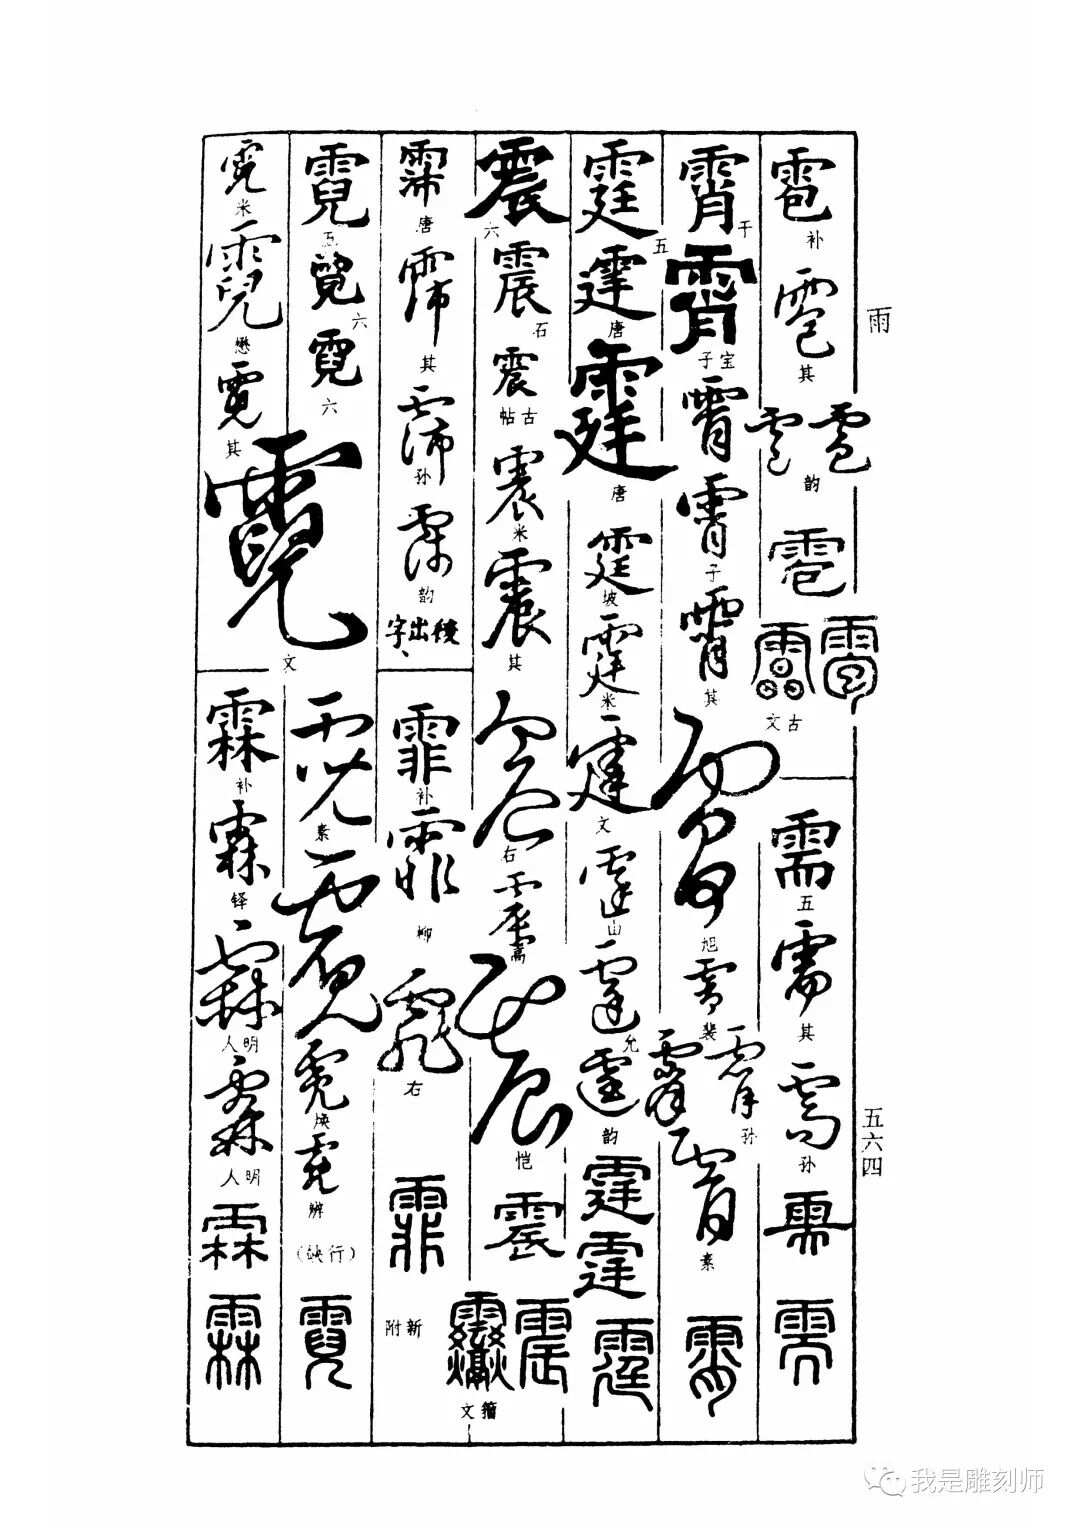 雨
五六四
雹
补
雹
其
雹
雹
韵
雹
雹
雹
古文
需
五
需
其
需
孙
需
需
霄
干
霄
宝子
霄
霄
子
霄
其
霄
旭
霄
裴
霄
霄
孙
霄
素
霄
霆
五
霆
唐
霆
唐
霆
坡
霆
米
霆
文
霆
山
霆
允
霆
韵
霆
霆
霆
震
六
震
石
震
古帖
震
米
震
其
震
右
震
高
震
恺
震
震
籀文
霈
唐
霈
其
霈
孙
霈
韵
後出字
霏
补
霏
柳
霏
右
霏
新附
霓
互
霓
六
霓
六
霓
素
霓
霓
焕
霓
辨
（行缺）
霓
霓
米
霓
懋
霓
其
霓
文
霖
补
霖
铎
霖
明人
霖
明人
霖
霖
我是雕刻师